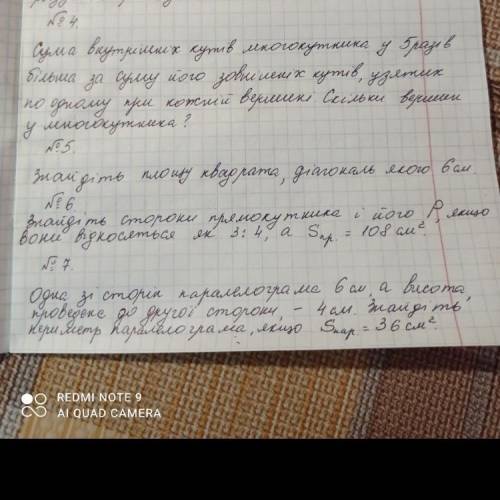 №4.
Сума внутрішніх кутів многокутника у 5 разів
більша за суму його зовнішніх кутів, узятих
по одному при кожній вершині Скільки вершин
у многокутника?
№5
Знайдіть площу квадрата, діагональ якого 6 см.
№6
Знайдіть сторони прямокутника і його P, якщо
вони відносяться як 3:4, а Sпр. = 108 см².
№7.
Одна зі сторін паралелограма 6 см, а висота,
проведена до другої сторони, - 4 см. Знайдіть
периметр паралелограма, якщо Sпар. = 36 см²
REDMI NOTE 9
AI QUAD CAMERA